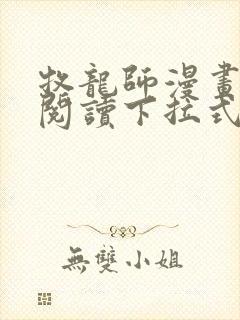 牧龍師漫畫
閱讀下拉式
無雙小姐